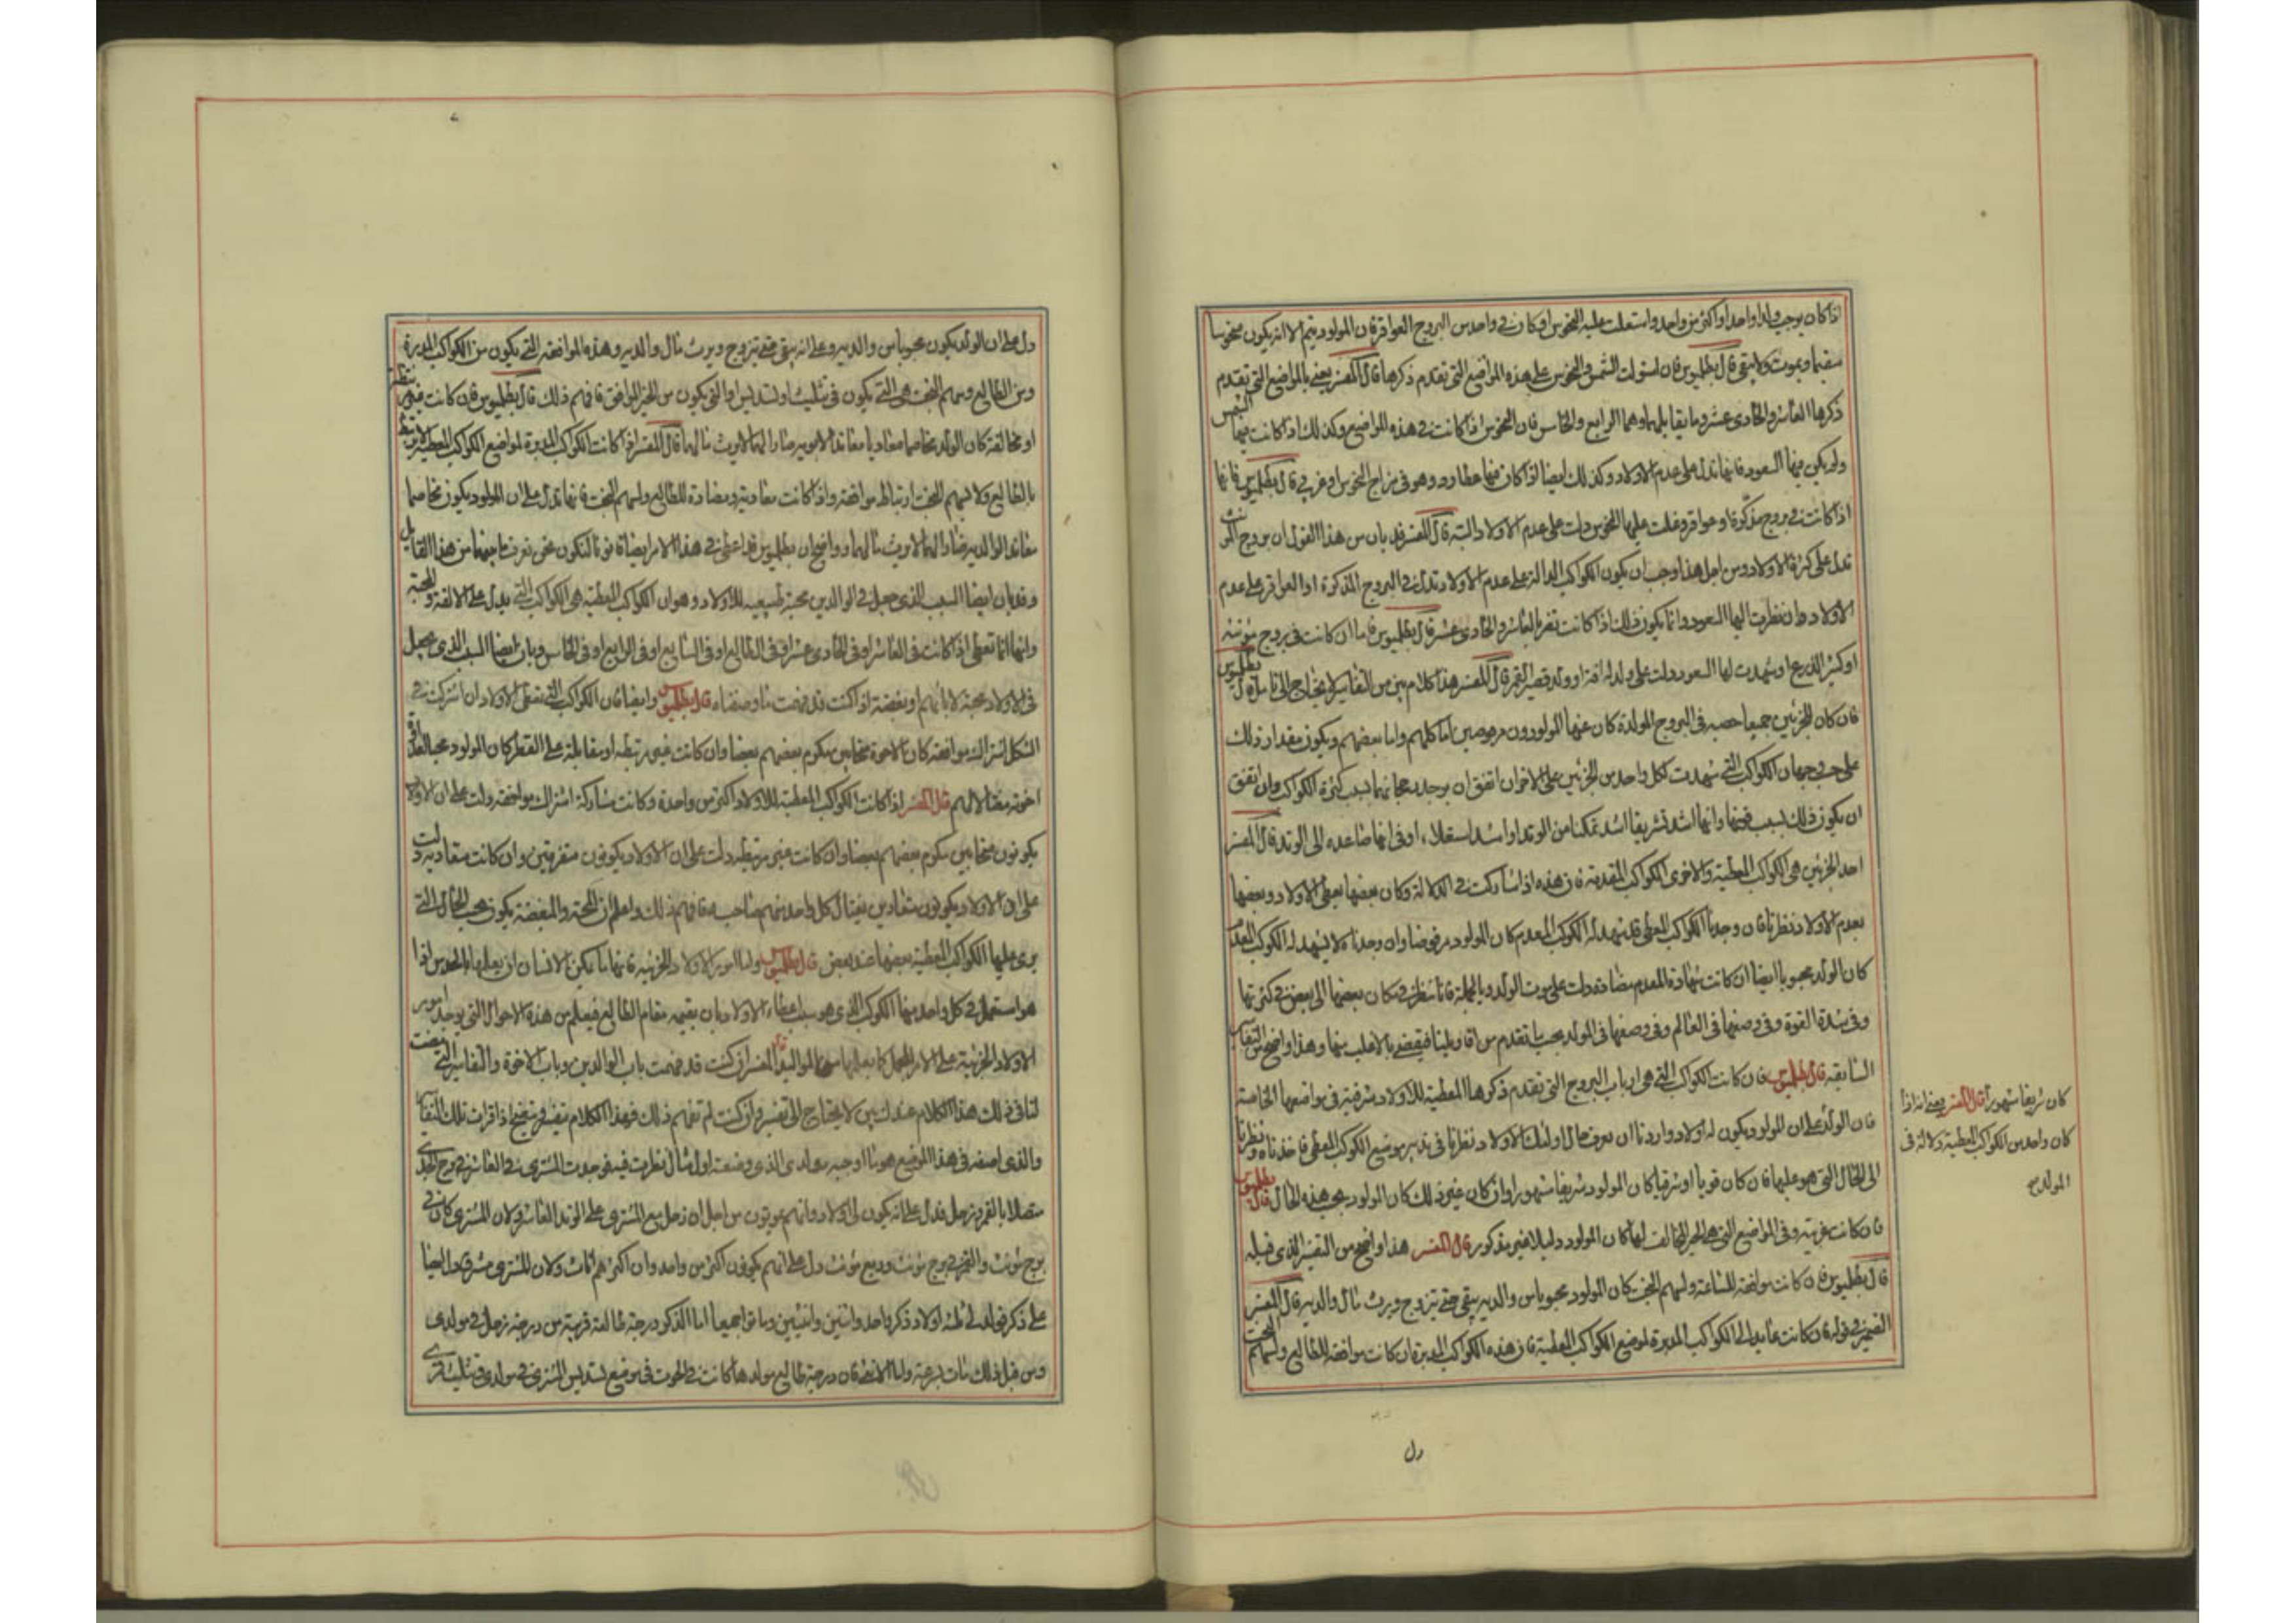 اذا كان يوجب ولدا واحدا او اكثر من واحد واستعلت عليه النحوس او كان في واحد من البروج العواقر فان المولود يتم الا انه يكون منحوسا
سقيما ويموت ولا يبقى قال بطلميوس فان استولت الشمس والنحوس على هذه المواضع التي تقدم ذكرها قال المفسر يعني بالمواضع التي تقدم
ذكرها العاشر والحادي عشر وما يقابلهما وهما الرابع والخامس فان النحوس اذا كانت في هذه المواضع وكذلك اذا كانت فيها الشمس
ولم يكن فيها السعود فانها تدل على عدم الاولاد وكذلك ايضا اذا كان فيها عطارد وهو في مزاج النحوس او غربي قال بطلميوس فانها
اذا كانت في بروج مذكرة او عواقر وغلبت عليها النحوس دلت على عدم الاولاد البتة قال المفسر قد بان من هذا القول ان بروج
تدل على كثرة الاولاد ومن اجل هذا وجب ان يكون الكواكب الدالة على عدم الاولاد تدل في البروج المذكرة او العواقر على عدم
الاولاد وان نظرت اليها السعود وانما يكون ذلك اذا كانت تنفرد بالعاشر والحادي عشر قال بطلميوس فاما ان كانت في بروج مؤنثة
او كثير الذرع او شهدت لها السعود دلت على ولد له افة او ولد قصير العمر قال المفسر هذا كلام بين من التفاسير لا يحتاج الى تاويل قال بطلميوس
فان كان للحزبين جميعا حصه في البروج المولدة كان عنها المولودون مرفوضين اما كلهم واما بعضهم ويكون مقدار ذلك
على حسب وجهان الكواكب التي شهدت لكل واحد من الحزبين على الاخر ان اتفق ان يوجد رجحانها بسبب كثرة الكواكب وان اتفق
ان يكون ذلك بسبب قوتها وانها اشد تشريقا اشد تمكنا من الوتد او اشد استعلاء او في انها صاعده الى الوتد قال المفسر
احد الحزبين هي الكواكب المعطية والاخرى الكواكب المعدمة فان هذه اذا شاركت في الدلالة وكان بعضها يعطي الاولاد وبعضها
يعدم الاولاد نظرنا فان وجدنا الكواكب المعطي قد شهد له الكوكب المعدم كان المولود مرفوضا وان وجدناه لا يشهد له الكوكب المعدم
كان الولد محبوبا ايضا ان كانت شهادة المعدم مضادة دلت على موت الولد وبالجملة فانا ننظر في مكان بعضها الى بعض في كثرتها
وفي شدة القوة وفي وصفها في العالم وفي وصفها في المولد بحسب ما تقدم من اقاويلنا فيقضي بالاغلب منها وهذا واضح من التفاسير
السابقة قال بطلميوس فان كانت الكواكب التي هي ارباب البروج التي تقدم ذكرها المعطية للاولاد شرقية في مواضعها الخاصية
كان شريفا مشهورا قال المفسر يعني انه اذا
كان واحد من الكواكب المعطية دلالة في
المولد
فان الولد على ان المولود يكون له اولاد واردنا ان نعرف حال اولئك الاولاد نظرنا في تدبير موضع الكوكب المعطي فاخذناه ونظرنا
الى الحال التي هو عليها فان كان قويا او شرقيا كان المولود شريفا مشهورا وان كان غير ذلك كان المولود بحسب هذه الحال قال بطلميوس
فان كانت غربية وفي المواضع التي هي الحيز المخالف لها كان المولود دليلا غير مذكور قال المفسر هذا واضح من التفسير الذي قبله
قال بطلميوس فان كانت موافقة للساعة ولسهم البخت كان المولود محبوبا من والديه يبقى حتى يتزوج ويرث مال والديه قال المفسر
الضمير في قوله فان كانت عايد الى الكواكب المدبرة لموضع الكواكب المعطية فان هذه الكواكب المدبرة ان كانت موافقة للطالع ولسهم البخت
دل
دل على ان الولد يكون محبوبا من والديه وعلى انه يبقى حتى يتزوج ويرث مال والديه وهذه الموافقة التي يكون من الكواكب المدبرة
ومن الطالع وسهم البخت هي التي يكون في تثليث او تسديس او التي يكون من الحيز الموافق فافهم ذلك قال بطلميوس فان كانت غير
او مخالفة كان الولد مخاصما معاديا معاندا لابويه ضارا لهما لا يرث مالهما قال المفسر اذا كانت الكواكب المدبرة لمواضع الكواكب المعطية
بالطالع ولا بسهم البخت ارتباط موافقة واذا كانت معادية ومضادة للطالع ولسهم البخت فانها تدل على ان المولود يكون مخاصما
معاندا لوالديه ضارا لهما لا يرث مالهما وواضح ان بطلميوس قد اعطى في هذا الامر ايضا قانونا لنكون نحن نعرف ما بينهما من هذا القايل
وقد بان ايضا السبب الذي جعل في الوالدين محبة طبيعية للاولاد وهو ان الكواكب المعطية هي الكواكب التي يدل على الالفة والمحبة
وانها انما تعطي اذا كانت في العاشر او في الحادي عشر او في الطالع او في السابع او في الرابع او في الخامس وبان ايضا السبب الذي يجعل
في الاولاد محبة لابائهم او بغضة اذا كنت قد فهمت ما وصفناه قال بطلميوس وايضا فان الكواكب التي تعطي الاولاد ان اشتركت في
الشكل اشتراك موافقة كان الاخوة متحابين يكرم بعضهم بعضا وان كانت غير مرتبطه او مقابلة على القطر كان المولود
اخوته مغتالا لهم قال المفسر اذا كانت الكواكب المعطية للاولاد اكثر من واحدة وكانت مشاركة اشتراك موافقة دلت على ان الاولاد
يكونون متحابين يكرم بعضهم بعضا وان كانت غير مرتبطه دلت على ان الاولاد يكونون متفرقين وان كانت متعادية دلت
على ان الاولاد يكونون متعادين يغتال كل واحد منهم صاحبه فافهم ذلك واعلم ان المحبة والمبغضة يكون بحسب الحال التي
يرى عليها الكواكب المعطية بعضها ضد بعض قال بطلميوس واما امور الاولاد الجزئية فانها ما يمكن الانسان ان يعلمها بالحدس اذا
هو استعمل في كل واحد منها الكوكب الذي هو سبب اعطاء الاولاد بان يقيمه مقام الطالع فيعلم من هذه الاحوال التي يوجد امور
الاولاد الجزئية على الامر المجمل كما يعلمها من المواليد قال المفسر ان كنت قد فهمت باب الوالدين وباب الاخوة والتفاسير التي وضعت
لنا في ذلك هذا الكلام عندك بين لا يحتاج الى تفسير وان كنت لم تفهم ذلك فهذا الكلام يتفسر ويتضح اذا قرات تلك التفاسير
والذي اصفه في هذا الموضع هو ما اوجبه مولدي الذي وضعته اول مثال نظرت فيه فوجدت المشتري في العاشر في برج الجدي
متصلا بالقمر وزحل فدل على انه يكون لي اولاد وانهم يموتون من اجل ان زحل مع المشتري على الوتد العاشر ولان المشتري كان في
برج مؤنث والقمر في برج مؤنث وربع مؤنث دل على انهم يكونون اكثر من واحد وان اكثرهم اناث ولان المشتري مشرق دل ايضا
على ذكر فولد لي ثلثة اولاد ذكر واحد واثنين وانثيين وماتوا جميعا اما الذكر درجة طالعة قريبة من درجة زحل في مولدي
ومن قبل ذلك مات بسرعة واما الانثى فان درجة طالع مولدها كانت في الحوت في موضع تسديس المشتري في مولدي وتثليث